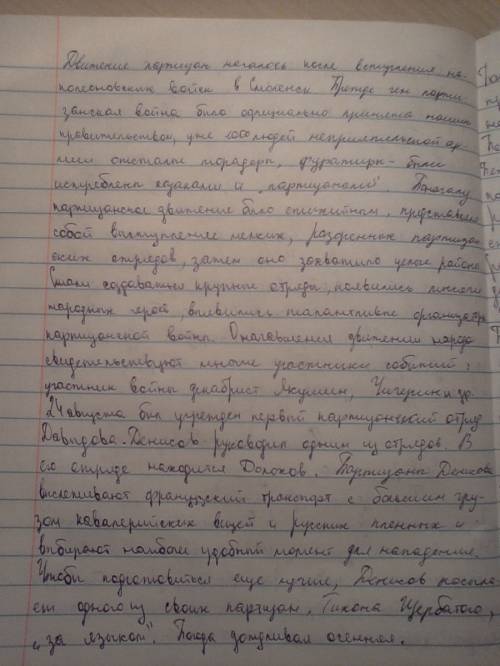 Движение партизан началось после вступления на-
полеоновских войск в Смоленск. Прежде чем парти-
занская война была официально принята нашим
правительством, уже 1000 людей неприятельской ар-
мии отсталые мародеры, фуражиры - были
истреблены казаками и "партизанами". Поначалу
партизанское движение было стихийным, представляло
собой выступление мелких, разрозненных партизан-
ских отрядов, затем оно захватило целые районы.
Стали создаваться крупные отряды, появились многие
народных герой, выявились талантливые организаторы
партизанской войны. О начавшемся движении народа
свидетельствуют многие участники событий:
участник войны декабрист Якушкин, Чичерин и др.
24 августа был учрежден первый партизанский отряд
Давыдова. Денисов руководил одним из отрядов. В
его отряде находится Долохов. Партизаны Денисова
выслеживают французский транспорт с большим гру-
зом кавалерийских вещей и русских пленных и
выбирают наиболее удобный момент для нападения.
Чтобы подготовиться еще лучше, Денисов посыла-
ет одного из своих партизан, Тихона Щербатого,
"за языком". Погода дождливая осенняя.